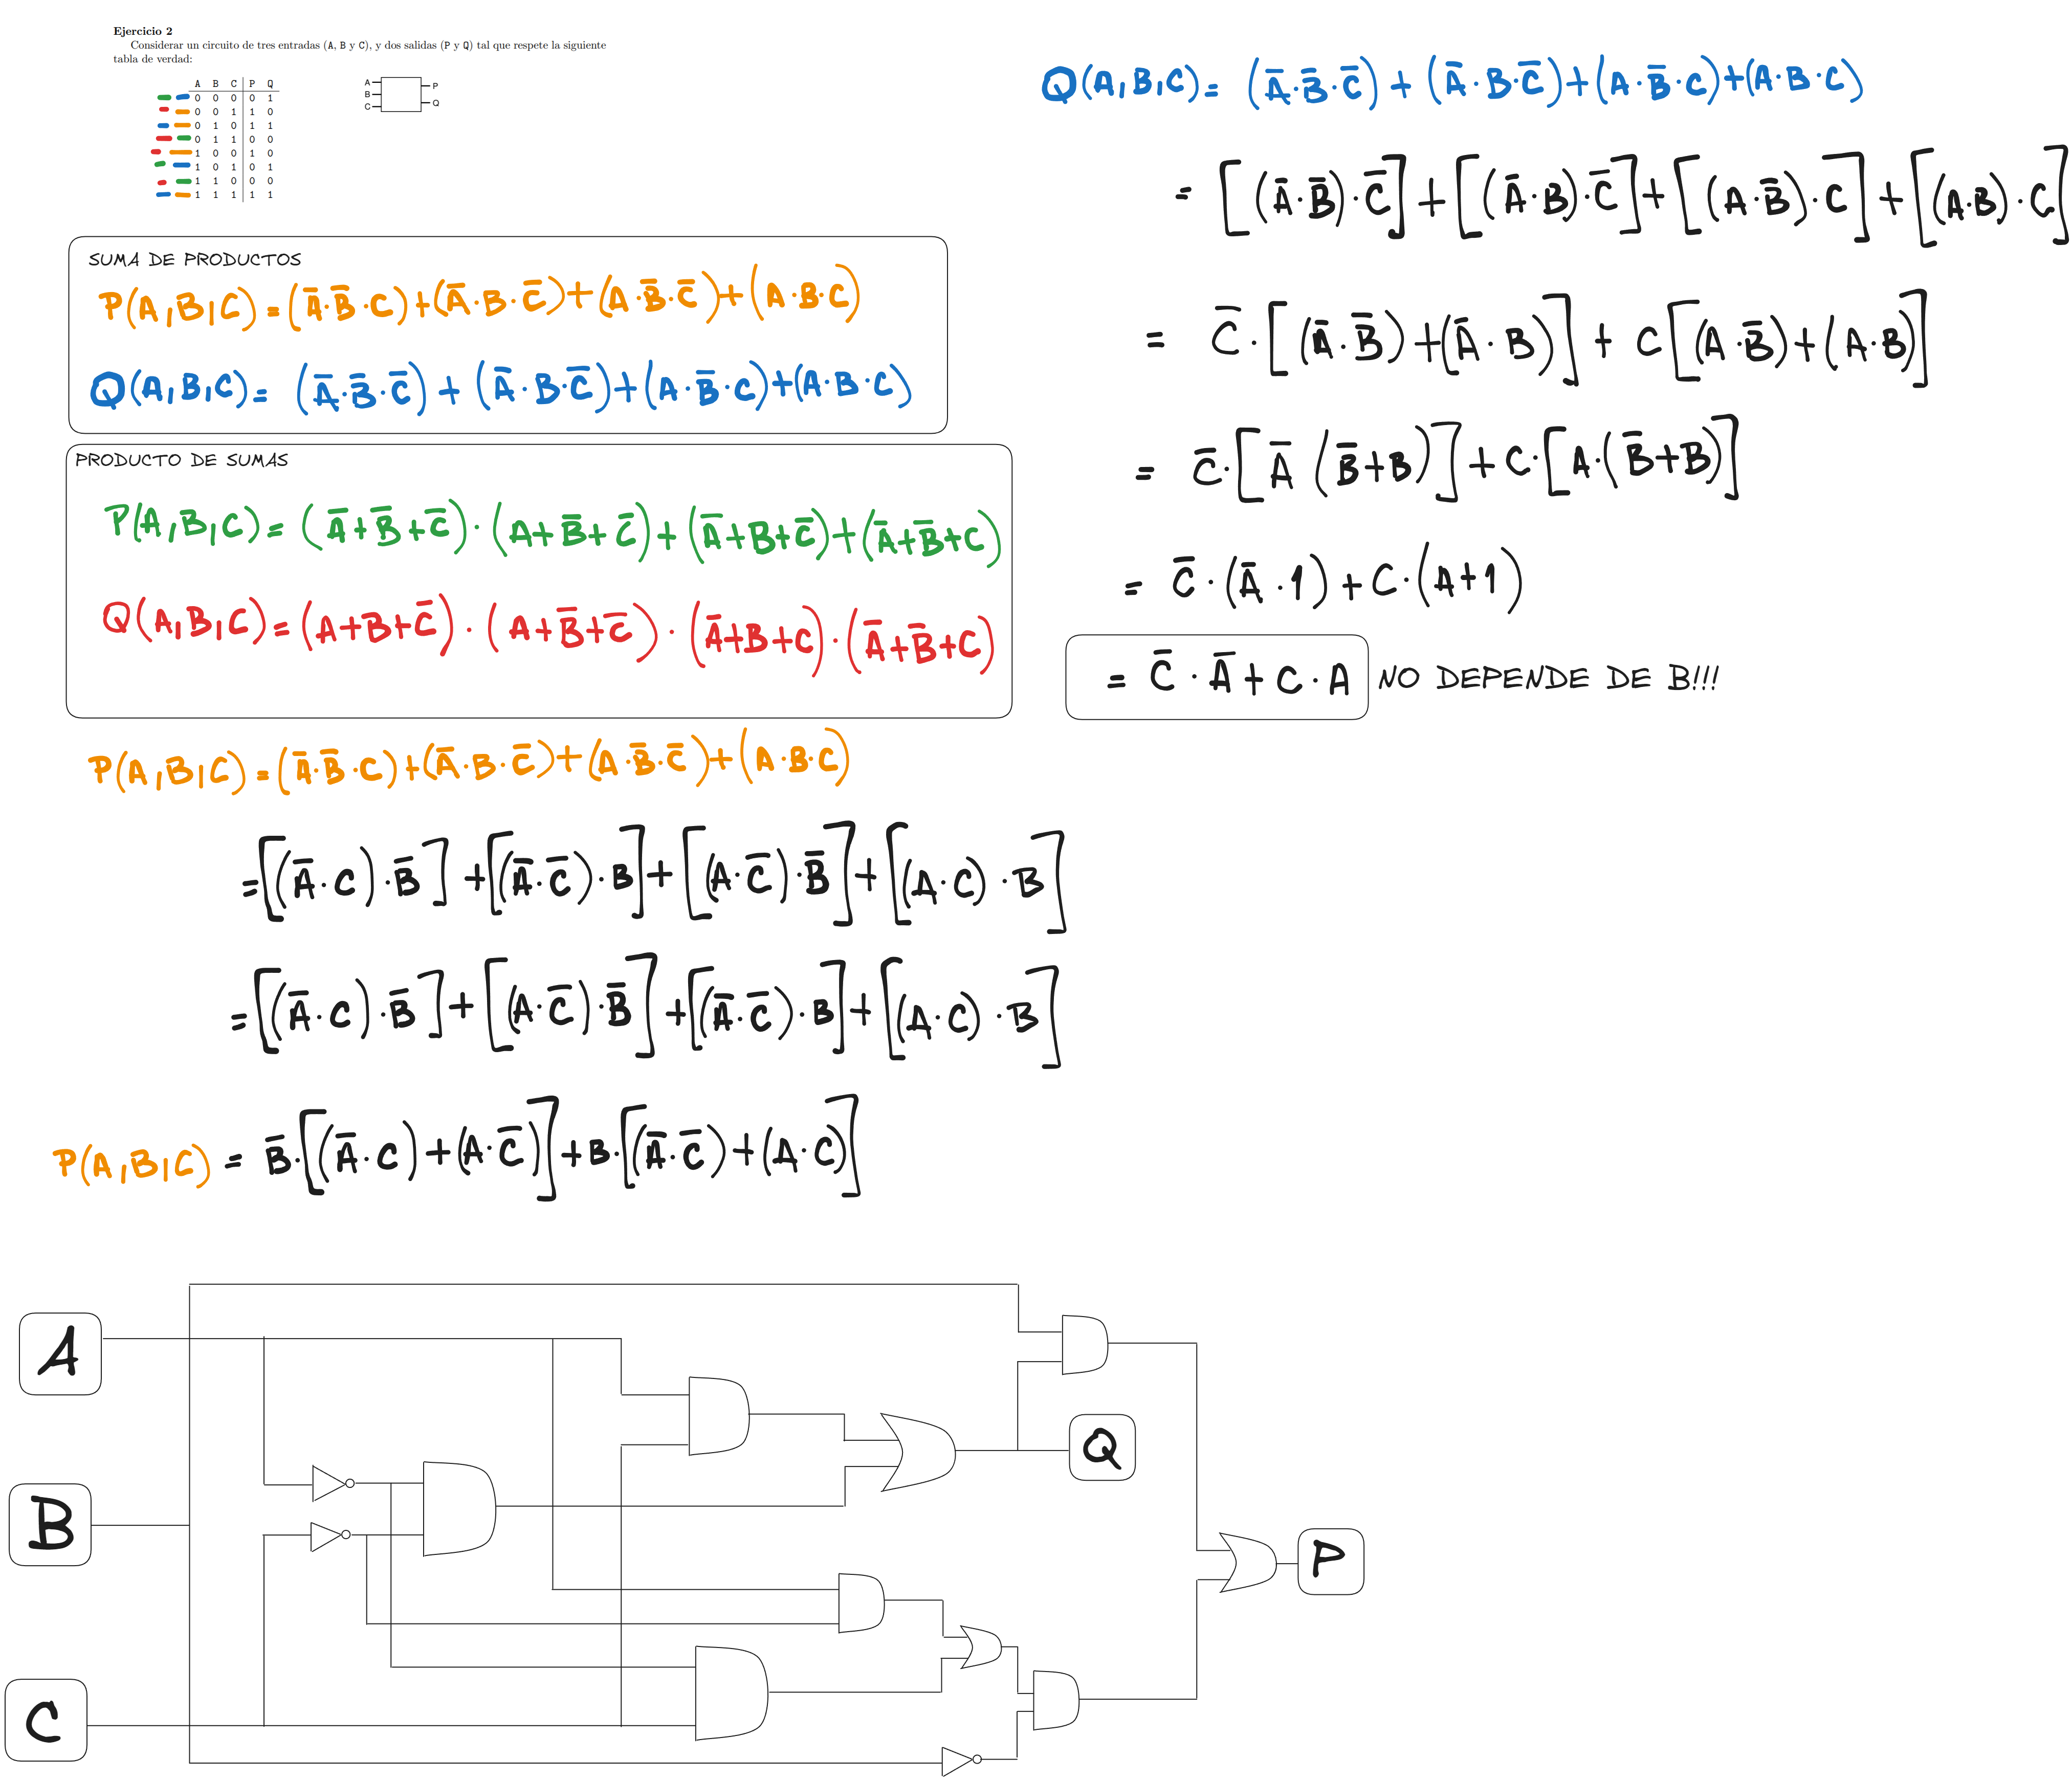 Ejercicio 2
Considerar un circuito de tres entradas (A, B y C), y dos salidas (P y Q) tal que respete la siguiente
tabla de verdad:
A B C P Q
0 0 0 0 1
0 0 1 1 0
0 1 0 1 1
0 1 1 0 0
1 0 0 1 0
1 0 1 0 1
1 1 0 0 0
1 1 1 1 1
A
B
C
P
Q
SUMA DE PRODUCTOS
P(A,B,C) = (A̅·B̅·C)+(A̅·B·C̅)+(A·B̅·C̅)+(A·B·C)
Q(A,B,C) = (A̅·B̅·C̅) + (A̅·B·C̅)+(A·B̅·C)+(A·B·C)
PRODUCTO DE SUMAS
P(A,B,C) = (A̅+B̅+C̅)·(A+B̅+C̅)+(A̅+B+C̅)+(A̅+B̅+C)
Q(A,B,C) = (A+B+C̅)·(A+B̅+C̅)·(A̅+B+C)·(A̅+B̅+C)
P(A,B,C) = (A̅·B̅·C)+(A̅·B·C̅)+(A·B̅·C̅)+(A·B·C)
= [(A̅·C)·B̅] + [(A̅·C̅)·B] + [(A·C̅)·B̅] + [(A·C)·B]
= [(A̅·C)·B̅] + [(A·C̅)·B̅] + [(A̅·C̅)·B] + [(A·C)·B]
P(A,B,C) = B̅·[(A̅·C)+(A·C̅)] + B·[(A̅·C̅)+(A·C)]
Q(A,B,C) = (A̅·B̅·C̅) + (A̅·B·C̅)+(A·B̅·C)+(A·B·C)
= [(A̅·B̅)·C̅] + [(A̅·B)·C̅] + [(A·B̅)·C] + [(A·B)·C]
= C̅·[(A̅·B̅)+(A̅·B)] + C[(A·B̅)+(A·B)]
= C̅·[A̅(B̅+B)] + C·[A·(B̅+B)]
= C̅·(A̅·1) + C·(A+1)
= C̅·A̅ + C·A NO DEPENDE DE B!!!
A
Q
B
P
C